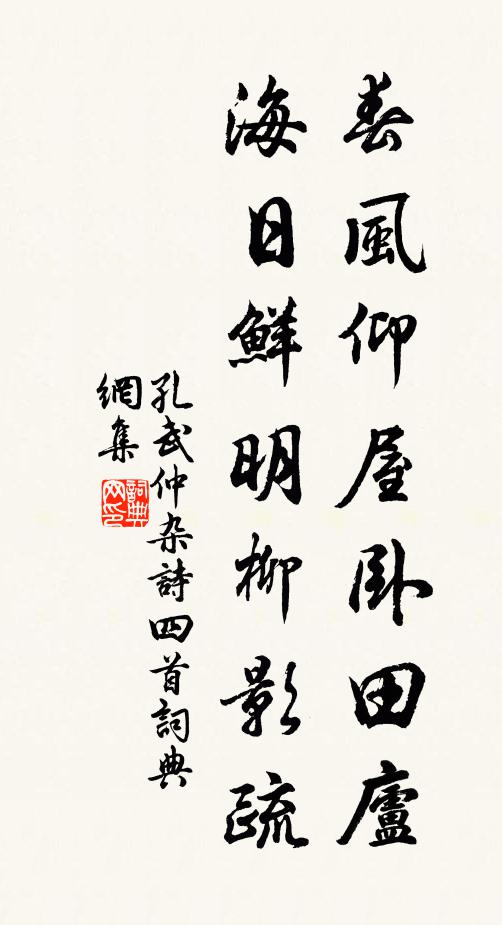 春風仰屋臥田廬
海日鮮明柳影疏
孔武仲杂詩四首詞典
網集
詞典網印